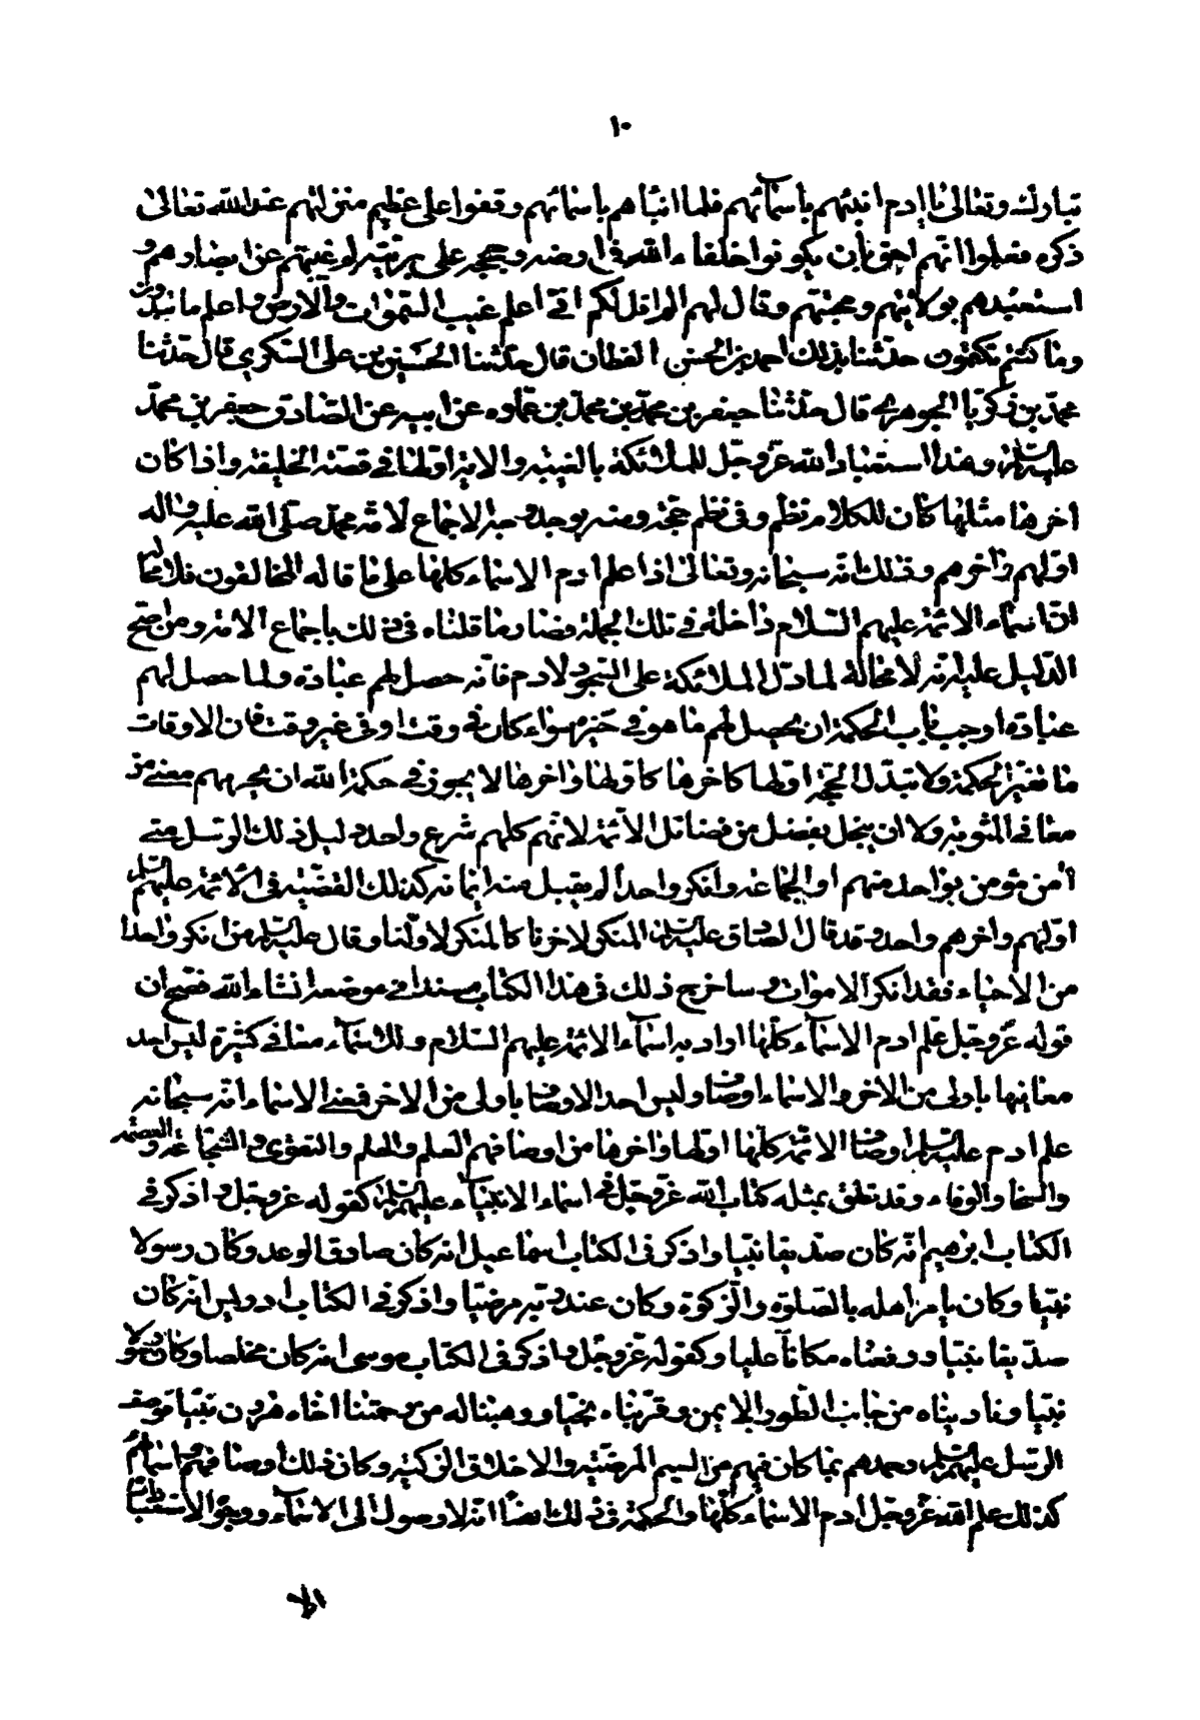 ١٠
تبارك وتعالى يا ادم انبئهم باسمآئهم فلما انبأهم باسمائهم وقفوا على عظيم منزلتهم عند الله تعالى
ذكره فعلموا انهم احق بان يكونوا خلفاء الله في ارضه وحججه على بريته ثم غيبهم عن ابصارهم و
استعبدهم بولايتهم ومحبتهم وقال لهم الم اقل لكم اني اعلم غيب السموات والارض واعلم ما تبدون
وما كنتم تكتمون حدثنا بذلك احمد بن الحسن القطان قال حدثنا الحسين بن على السكري قال حدثنا
محمد بن زكريا الجوهري قال حدثنا جعفر بن محمد بن عماره عن ابيه عن الصادق جعفر بن محمد
عليه السلام وهذا استعباد الله عز وجل للملائكة بالغيبه والايه اولها في قصة الخليفه واذا كان
اخرها مثلها كان للكلام نظم وفى نظم حجه ومنه يوجد وجه الاجماع لامة محمد صلى الله عليه واله
اولهم واخرهم وذلك انه سبحانه وتعالى اذا علم ادم الاسماء كلها على ما قاله المخالفون فلا محالة
ان اسماء الائمة عليهم السلام داخلة في تلك الجملة فصار ما قلناه في ذلك باجماع الامة ومن اصح
الدليل عليه انه لا محالة لما دل الملائكة على السجود لادم فانه حصل لهم عبادة ولما حصل لهم
عبادة اوجب باب الحكمة ان يحصل لهم ما هو في حيزه سواء كان في وقت او في غير وقت فان الاوقات
ما تغير الحكمة ولا تبدل الحجة اولها كاخرها كاولها واخرها لا يجوز في حكمة الله ان يحرمهم معنى من
معاني المثوبة ولا ان يبخل بفضل من فضائل الآئمة لانهم كلهم شرع واحد دليل ذلك الرسل متى
آمن مؤمن بواحد منهم او الجماعة وانكر واحداً لم يقبل منه ايمانه كذلك القضيه في الآئمة عليهم السلام
اولهم واخرهم واحد وقد قال الصادق عليه السلام المنكر لاخرنا كالمنكر لاولنا وقال عليه السلام من انكر واحداً
من الاحياء فقد انكر الاموات وساخرج ذلك فى هذا الكتاب مسندا في موضعه انشاء الله فصح ان
قوله عز وجل علم ادم الاسمآء كلها اراد به اسمآء الائمة عليهم السلام وللاسمآء معاني كثيرة ليس احد
معانيها باولى من الاخر والاسماء اوصاف وليس احد الاوصاف باولى من الاخر فمعنى الاسماء انه سبحانه
علم ادم عليه السلام اوصاف الائمة كلها اولها واخرها من اوصافهم العلم والحلم والتقوى والشجاعة والعصمة
والسخا والوفاء وقد نطق بمثله كتاب الله عز وجل في اسماء الانبياء عليهم السلام كقوله عز وجل واذكر في
الكتاب ابرهيم انه كان صديقا نبيا واذكر فى الكتاب اسماعيل انه كان صادق الوعد وكان رسولا
نبيا وكان يامر اهله بالصلوة والزكوة وكان عند ربه مرضيا واذكر في الكتاب ادريس انه كان
صديقا نبيا ورفعناه مكاناً عليا وكقوله عز وجل واذكر فى الكتاب موسى انه كان مخلصا وكان رسولا
نبيا وناديناه من جانب الطور الايمن وقربناه نجيا ووهبنا له من رحمتنا اخاه هرون نبيا فوصف
الرسل عليهم السلام وحمدهم بما كان فيهم من الشيم المرضيه والاخلاق الزكيه وكان ذلك اوصافهم واسمائهم
كذلك علم الله عز وجل ادم الاسماء كلها والحكمة فى ذلك ايضاً انه لا وصول الى الاسمآء ووجوه الاستعبادات
الا